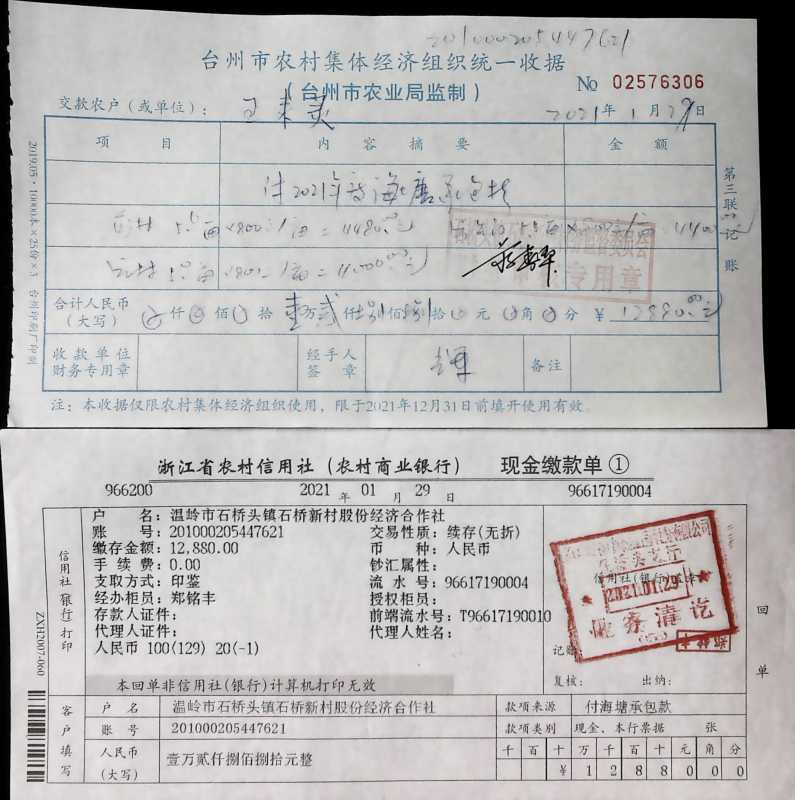 201000205447621
台州市农村集体经济组织统一收据
(台州市农业局监制)
№ 02576306
交款农户(或单位):
2021年1月29日
项目 内容摘要 金额
2019.05·10000本×25份×3 台州印刷厂印制
第三联 记账
合计人民币(大写) 仟 佰 拾 壹万贰仟捌佰捌拾 元 角 分 ¥ 12880.00元
收款单位财务专用章 经手人签章 备注
注:本收据仅限农村集体经济组织使用,限于2021年12月31日前填开使用有效。
浙江省农村信用社(农村商业银行) 现金缴款单①
966200 2021年01月29日 96617190004
户名:温岭市石桥头镇石桥新村股份经济合作社
账号:201000205447621 交易性质:续存(无折)
缴存金额:12,880.00 币种:人民币
手续费:0.00 钞汇属性:
支取方式:印鉴 流水号:96617190004
经办柜员:郑铭丰 授权柜员:
存款人证件: 前端流水号:T96617190010
代理人证件: 代理人姓名:
人民币 100(129) 20(-1)
本回单非信用社(银行)计算机打印无效
信用社(银行)打印
ZXH2007-060
2021.01.29
记账:
复核: 出纳:
回单
客户填写
户名 温岭市石桥头镇石桥新村股份经济合作社 款项来源 付海塘承包款
账号 201000205447621 款项类别 现金、本行票据 张
人民币(大写) 壹万贰仟捌佰捌拾元整 千百十万千百十元角分
¥1288000